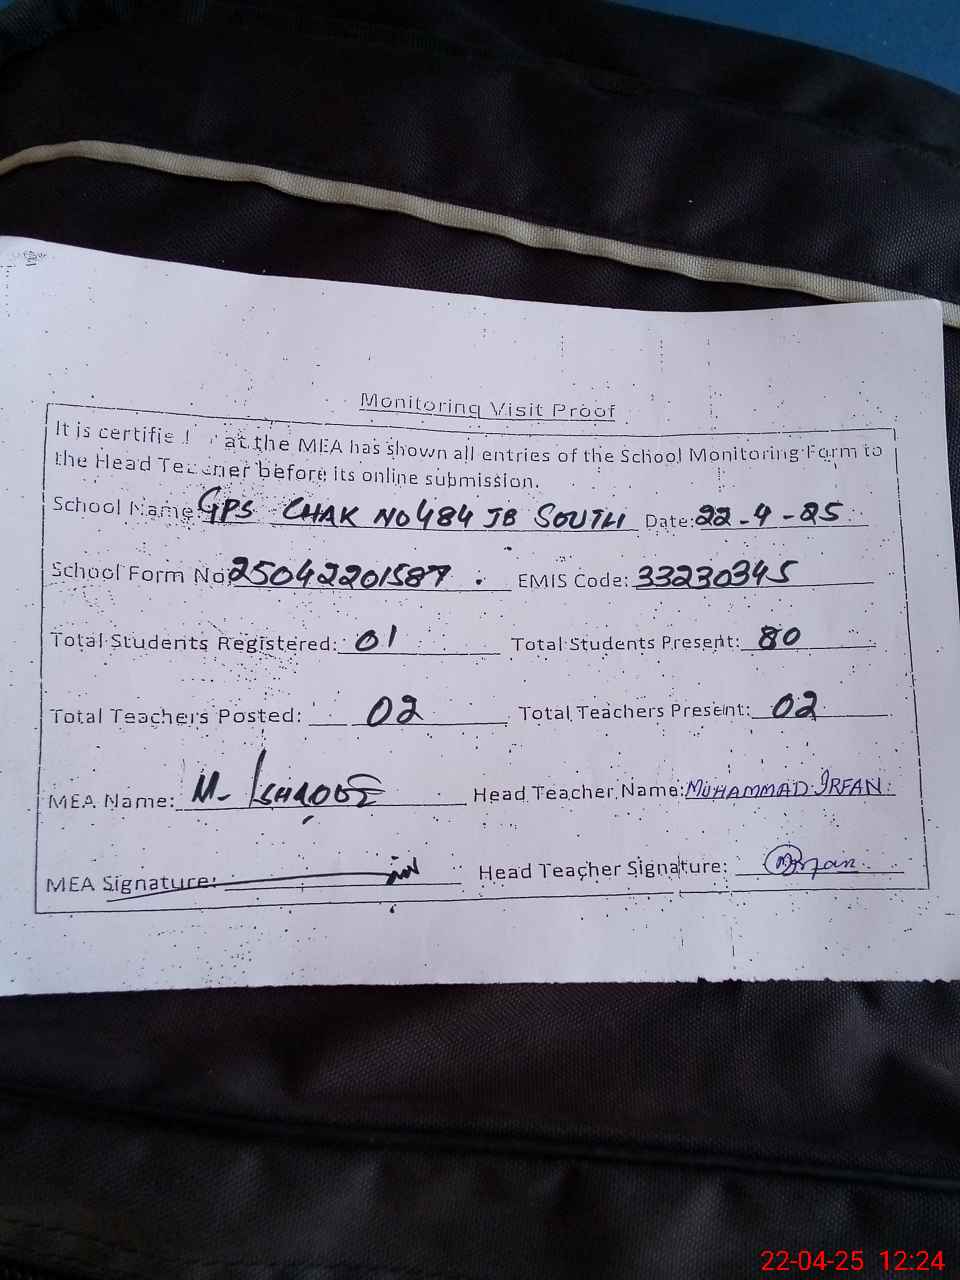 Monitoring Visit Proof
It is certified that the MEA has shown all entries of the School Monitoring Form to
the Head Teacher before its online submission.
School Name: GPS CHAK NO 484 JB SOUTH Date: 22-4-25
School Form No: 25042201587 . EMIS Code: 33230345
Total Students Registered: 01 Total Students Present: 80
Total Teachers Posted: 02 Total Teachers Present: 02
MEA Name: M. Head Teacher Name: MUHAMMAD IRFAN
MEA Signature: Head Teacher Signature: M. Irfan
22-04-25 12:24